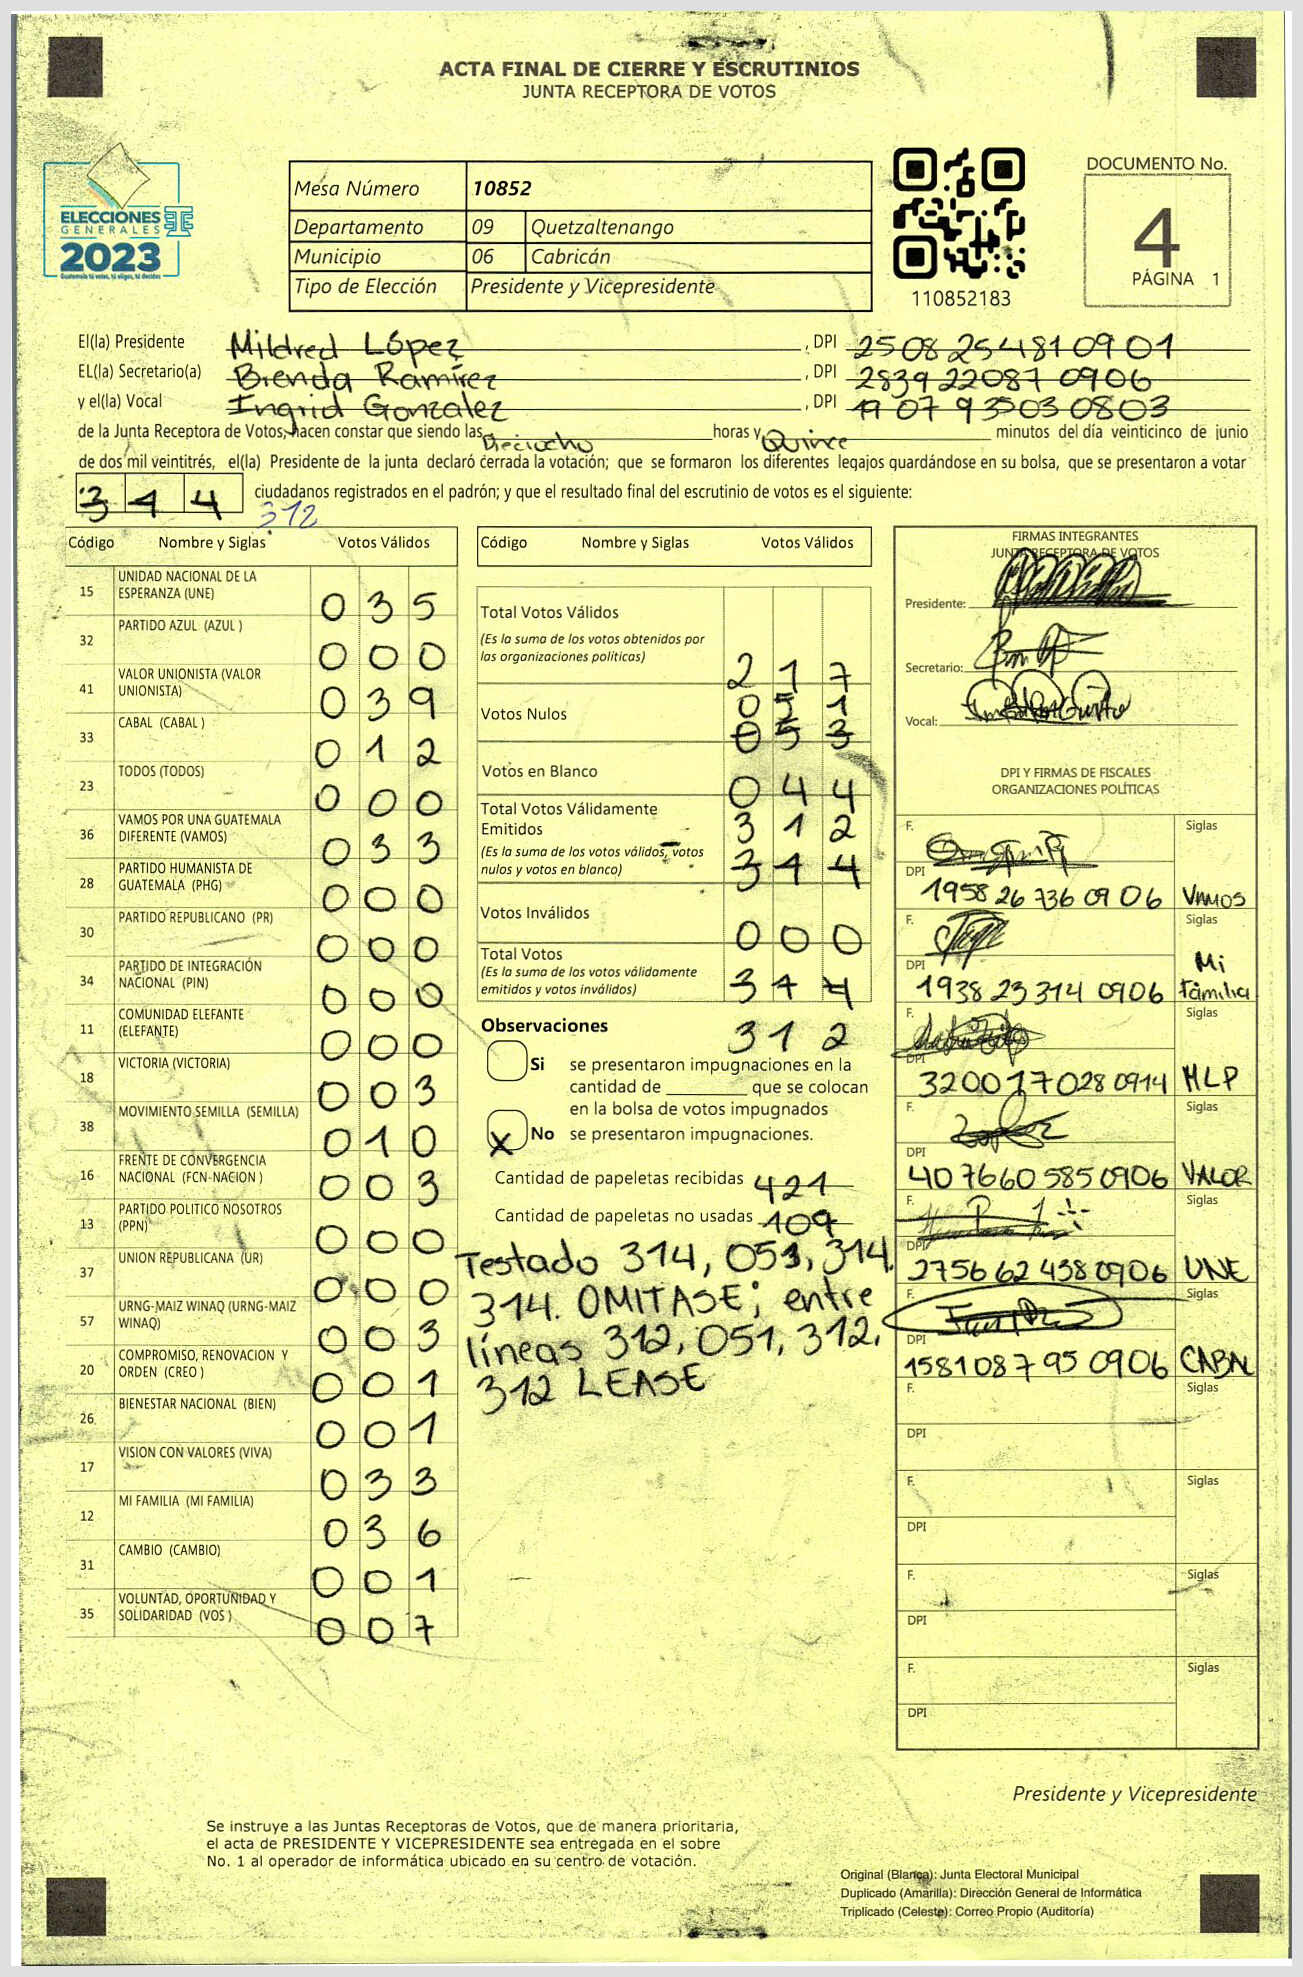 ACTA FINAL DE CIERRE Y ESCRUTINIOS
JUNTA RECEPTORA DE VOTOS
ELECCIONES
GENERALES
2023
Guatemala tú votas, tú eliges, tú decides
Mesa Número 10852
Departamento 09 Quetzaltenango
Municipio 06 Cabricán
Tipo de Elección Presidente y Vicepresidente
110852183
DOCUMENTO No.
4
PÁGINA 1
El(la) Presidente Mildred López , DPI 2508 25481 0901
EL(la) Secretario(a) Brenda Ramírez , DPI 2839 22087 0906
y el(la) Vocal Ingrid Gonzalez , DPI 1907 93503 0803
de la Junta Receptora de Votos, hacen constar que siendo las Dieciocho horas y Quince minutos del día veinticinco de junio
de dos mil veintitrés, el(la) Presidente de la junta declaró cerrada la votación; que se formaron los diferentes legajos guardándose en su bolsa, que se presentaron a votar
314 ciudadanos registrados en el padrón; y que el resultado final del escrutinio de votos es el siguiente:
312
Código Nombre y Siglas Votos Válidos
15 UNIDAD NACIONAL DE LA
ESPERANZA (UNE) 035
32 PARTIDO AZUL (AZUL ) 000
41 VALOR UNIONISTA (VALOR
UNIONISTA) 039
33 CABAL (CABAL ) 012
23 TODOS (TODOS) 000
36 VAMOS POR UNA GUATEMALA
DIFERENTE (VAMOS) 033
28 PARTIDO HUMANISTA DE
GUATEMALA (PHG) 000
30 PARTIDO REPUBLICANO (PR) 000
34 PARTIDO DE INTEGRACIÓN
NACIONAL (PIN) 000
11 COMUNIDAD ELEFANTE
(ELEFANTE) 000
18 VICTORIA (VICTORIA) 003
38 MOVIMIENTO SEMILLA (SEMILLA) 010
16 FRENTE DE CONVERGENCIA
NACIONAL (FCN-NACION ) 003
13 PARTIDO POLITICO NOSOTROS
(PPN) 000
37 UNION REPUBLICANA (UR) 000
57 URNG-MAIZ WINAQ (URNG-MAIZ
WINAQ) 003
20 COMPROMISO, RENOVACION Y
ORDEN (CREO ) 001
26 BIENESTAR NACIONAL (BIEN) 001
17 VISION CON VALORES (VIVA) 033
12 MI FAMILIA (MI FAMILIA) 036
31 CAMBIO (CAMBIO) 001
35 VOLUNTAD, OPORTUNIDAD Y
SOLIDARIDAD (VOS ) 007
Código Nombre y Siglas Votos Válidos
Total Votos Válidos
(Es la suma de los votos obtenidos por
las organizaciones políticas) 217
051
Votos Nulos 053
Votos en Blanco 044
Total Votos Válidamente
Emitidos 312
(Es la suma de los votos válidos, votos
nulos y votos en blanco) 314
Votos Inválidos 000
Total Votos
(Es la suma de los votos válidamente
emitidos y votos inválidos) 314
312
Observaciones
Si se presentaron impugnaciones en la
cantidad de que se colocan
en la bolsa de votos impugnados
X No se presentaron impugnaciones.
Cantidad de papeletas recibidas 421
Cantidad de papeletas no usadas 109
Testado 314, 053, 314.
314. OMITASE; entre
líneas 312, 051, 312,
312 LEASE
FIRMAS INTEGRANTES
JUNTA RECEPTORA DE VOTOS
Presidente:
Secretario:
Vocal:
DPI Y FIRMAS DE FISCALES
ORGANIZACIONES POLÍTICAS
F. Siglas
DPI 1958 26 736 09 06 VAMOS
F. Siglas
DPI 1938 23 314 0906 Mi
Familia
F. Siglas
DPI 3200 17028 0914 MLP
F. Siglas
DPI 4076 60 585 0906 VALOR
F. Siglas
DPI 2756 62 438 0906 UNE
F. Siglas
DPI 1581 087 95 0906 CABAL
F. Siglas
DPI
F. Siglas
DPI
F. Siglas
DPI
F. Siglas
DPI
Presidente y Vicepresidente
Se instruye a las Juntas Receptoras de Votos, que de manera prioritaria,
el acta de PRESIDENTE Y VICEPRESIDENTE sea entregada en el sobre
No. 1 al operador de informática ubicado en su centro de votación.
Original (Blanca): Junta Electoral Municipal
Duplicado (Amarilla): Dirección General de Informática
Triplicado (Celeste): Correo Propio (Auditoría)